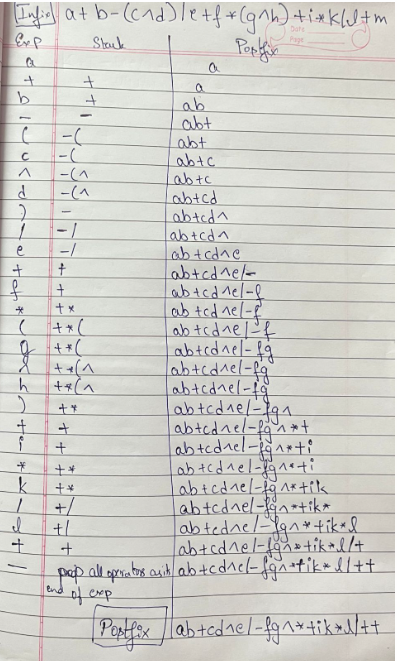 Infix a+b-(c^d)/e+f*(g^h)+i*k/l+m
Date
Page
Exp Stack Postfix
a a
+ + a
b + ab
- - ab+
( -( ab+
c -( ab+c
^ -(^ ab+c
d -(^ ab+cd
) - ab+cd^
/ -/ ab+cd^
e -/ ab+cd^e
+ + ab+cd^e/-
f + ab+cd^e/-f
* +* ab+cd^e/-f
( +*( ab+cd^e/-f
g +*( ab+cd^e/-fg
^ +*(^ ab+cd^e/-fg
h +*(^ ab+cd^e/-fg
) +* ab+cd^e/-fg^
+ + ab+cd^e/-fg^*+
i + ab+cd^e/-fg^*+i
* +* ab+cd^e/-fg^*+i
k +* ab+cd^e/-fg^*+ik
/ +/ ab+cd^e/-fg^*+ik*
l +/ ab+cd^e/-fg^*+ik*l
+ + ab+cd^e/-fg^*+ik*l/+
— pop all operators with ab+cd^e/-fg^*+ik*l/++
end of exp
Postfix ab+cd^e/-fg^*+ik*l/++